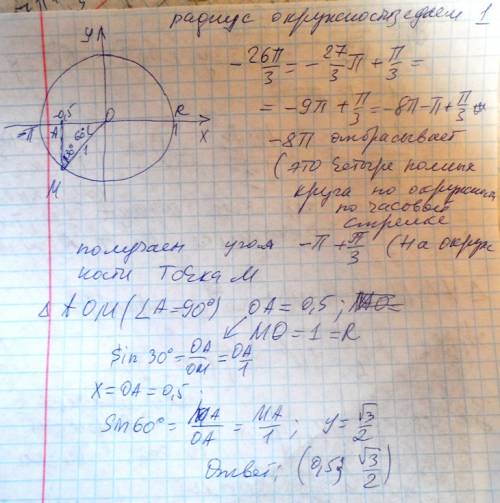 радиус окружности едаем 1
У
-26π/3 = -27/3 π + π/3 =
-0,5 O R
-π A 60° 1 1 X
= -9π + π/3 = -8π-π+π/3
30°
M
-8π отбрасывает
(это четыре полных
круга по окружност
по часовой
стрелке
получаем угол -π + π/3 (на окруж
ности точка М
Δ AOM (∠A=90°) OA = 0,5;
MO = 1 = R
Sin 30° = OA/OM = OA/1
X = OA = 0,5
Sin 60° = MA/OA = MA/1; y = √3/2
Ответ: (0,5; √3/2)